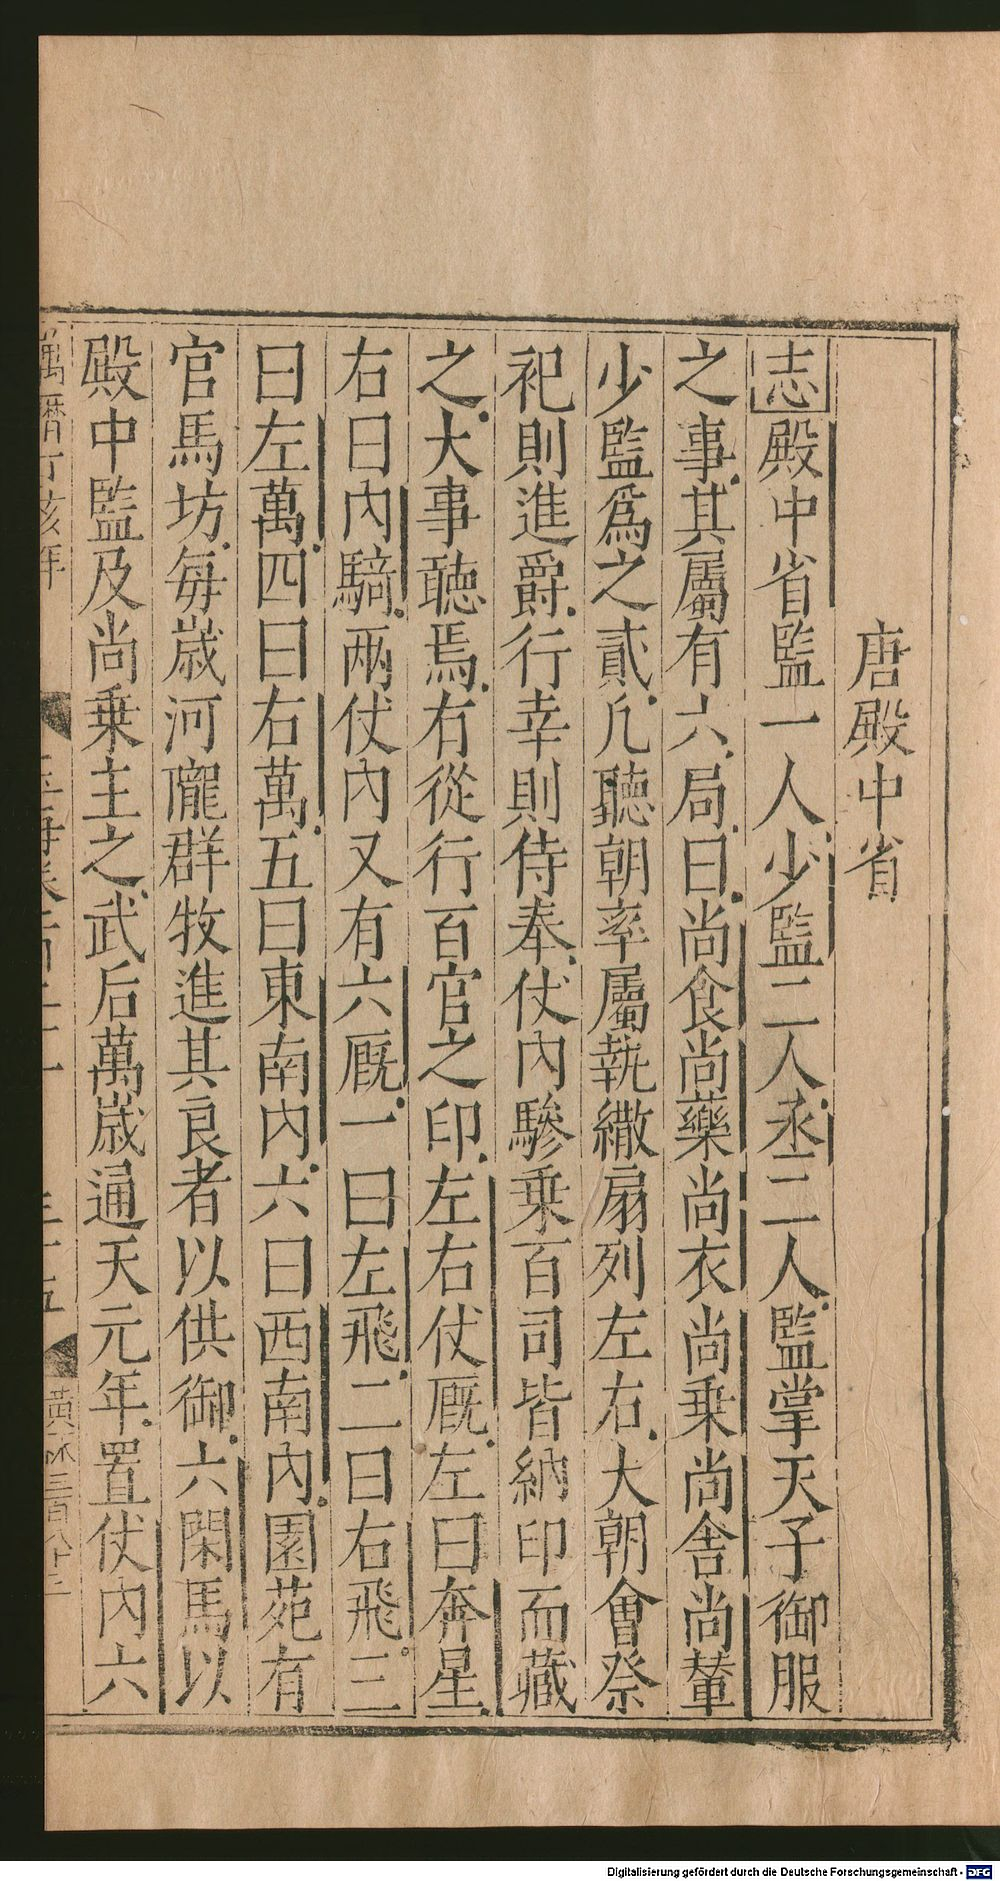 唐殿中省
志殿中省監一人少監二人丞二人監掌天子御服
之事其屬有六局曰尚食尚藥尚衣尚乗尚舍尚輦
少監爲之貳凡聽朝率屬執繖扇列左右大朝會祭
祀則進爵行幸則侍奉仗內驂乗百司皆納印而藏
之大事聴焉有從行百官之印左右仗厩左曰奔星
右曰內騎兩仗內又有六厩一曰左飛二曰右飛三
曰左萬四曰右萬五曰東南內六曰西南內園苑有
官馬坊每歲河隴群牧進其良者以供御六閑馬以
殿中監及尚乗主之武后萬歲通天元年置仗内六
萬曆丁亥年
Digitalisierung gefördert durch die Deutsche Forschungsgemeinschaft - DFG